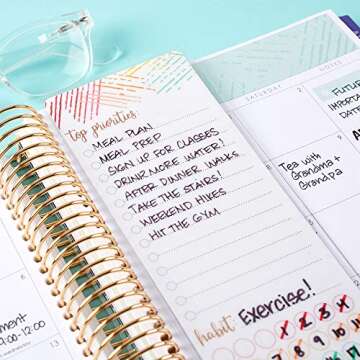 top priorities
MEAL PLAN
MEAL PREP
SIGN UP FOR CLASSES
DRINK MORE WATER!
AFTER DINNER WALKS
TAKE THE STAIRS!
WEEKEND HIKES
HIT THE GYM
habit: Exercise!
1
2
3
SATURDAY
NOTES
FUTURE
IMPORTAN
DATE
Tea with
Grandma +
Grandpa
9:00-12:00